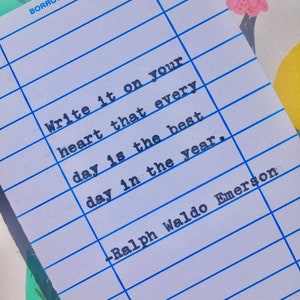 BORRO
Write it on your
heart that every
day is the best
day in the year.
-Ralph Waldo Emerson